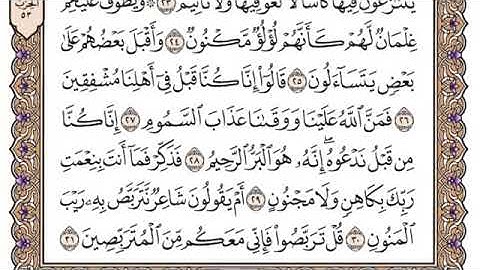 الحزب
٥٣
يَتَنَٰزَعُونَ فِيهَا كَأْسًا لَّا لَغْوٌ فِيهَا وَلَا تَأْثِيمٌ ۝٢٣ ۞ وَيَطُوفُ عَلَيْهِمْ
غِلْمَانٌ لَّهُمْ كَأَنَّهُمْ لُؤْلُؤٌ مَّكْنُونٌ ۝٢٤ وَأَقْبَلَ بَعْضُهُمْ عَلَىٰ
بَعْضٍ يَتَسَآءَلُونَ ۝٢٥ قَالُوٓا۟ إِنَّا كُنَّا قَبْلُ فِىٓ أَهْلِنَا مُشْفِقِينَ
۝٢٦ فَمَنَّ ٱللَّهُ عَلَيْنَا وَوَقَىٰنَا عَذَابَ ٱلسَّمُومِ ۝٢٧ إِنَّا كُنَّا
مِن قَبْلُ نَدْعُوهُ ۖ إِنَّهُۥ هُوَ ٱلْبَرُّ ٱلرَّحِيمُ ۝٢٨ فَذَكِّرْ فَمَآ أَنتَ بِنِعْمَتِ
رَبِّكَ بِكَاهِنٍ وَلَا مَجْنُونٍ ۝٢٩ أَمْ يَقُولُونَ شَاعِرٌ نَّتَرَبَّصُ بِهِۦ رَيْبَ
ٱلْمَنُونِ ۝٣٠ قُلْ تَرَبَّصُوا۟ فَإِنِّى مَعَكُم مِّنَ ٱلْمُتَرَبِّصِينَ ۝٣١